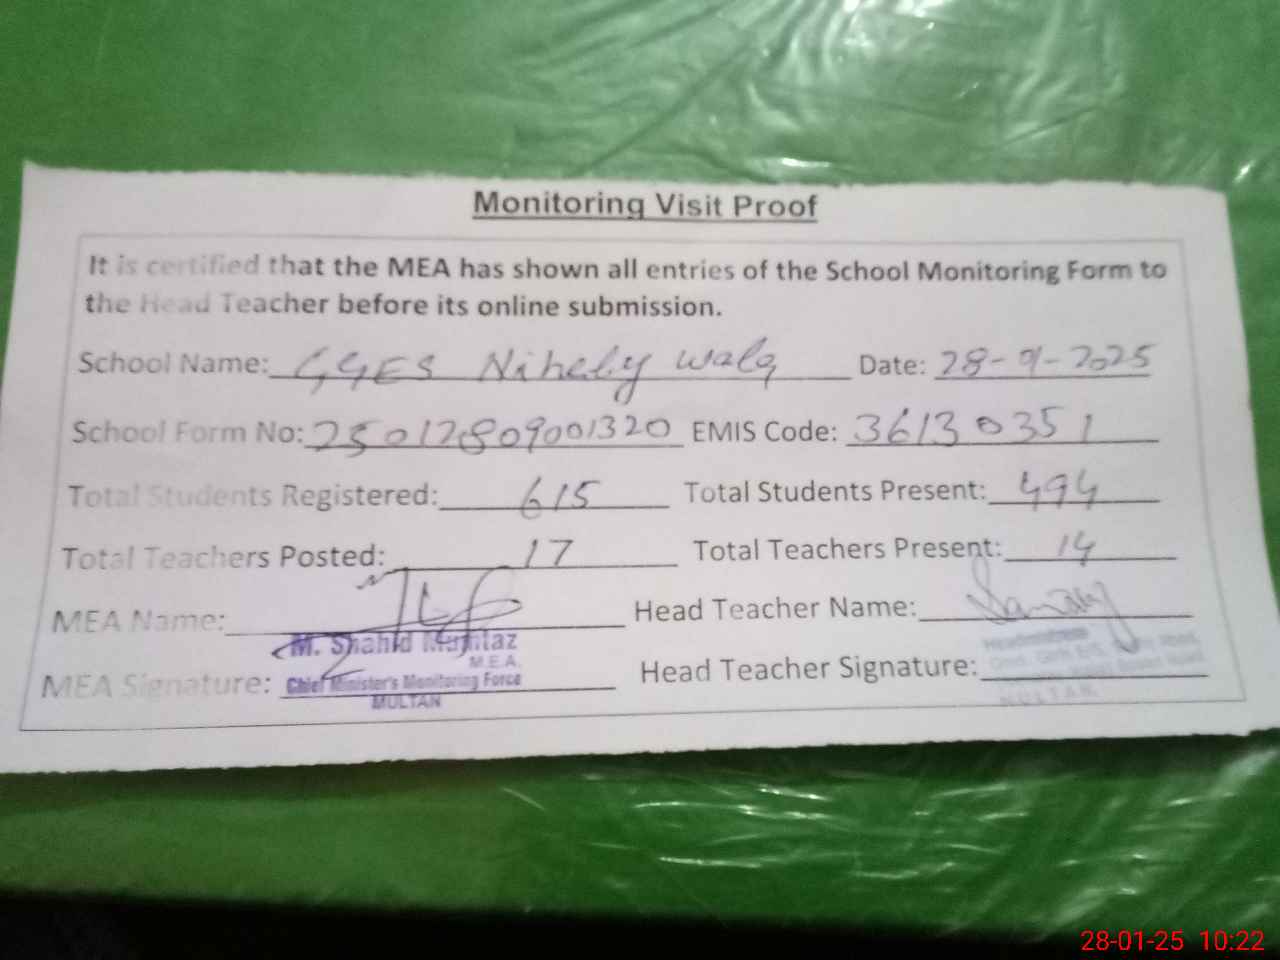 Monitoring Visit Proof
It is certified that the MEA has shown all entries of the School Monitoring Form to
the Head Teacher before its online submission.
School Name: GGES Nihaly wala Date: 28-9-2025
School Form No: 25012809001320 EMIS Code: 36130351
Total Students Registered: 615 Total Students Present: 494
Total Teachers Posted: 17 Total Teachers Present: 14
MEA Name: Head Teacher Name:
M. Shahid Mumtaz
M.E.A.
MEA Signature: Head Teacher Signature:
Chief Minister's Monitoring Force
MULTAN
Headmistress
MULTAN.
28-01-25 10:22